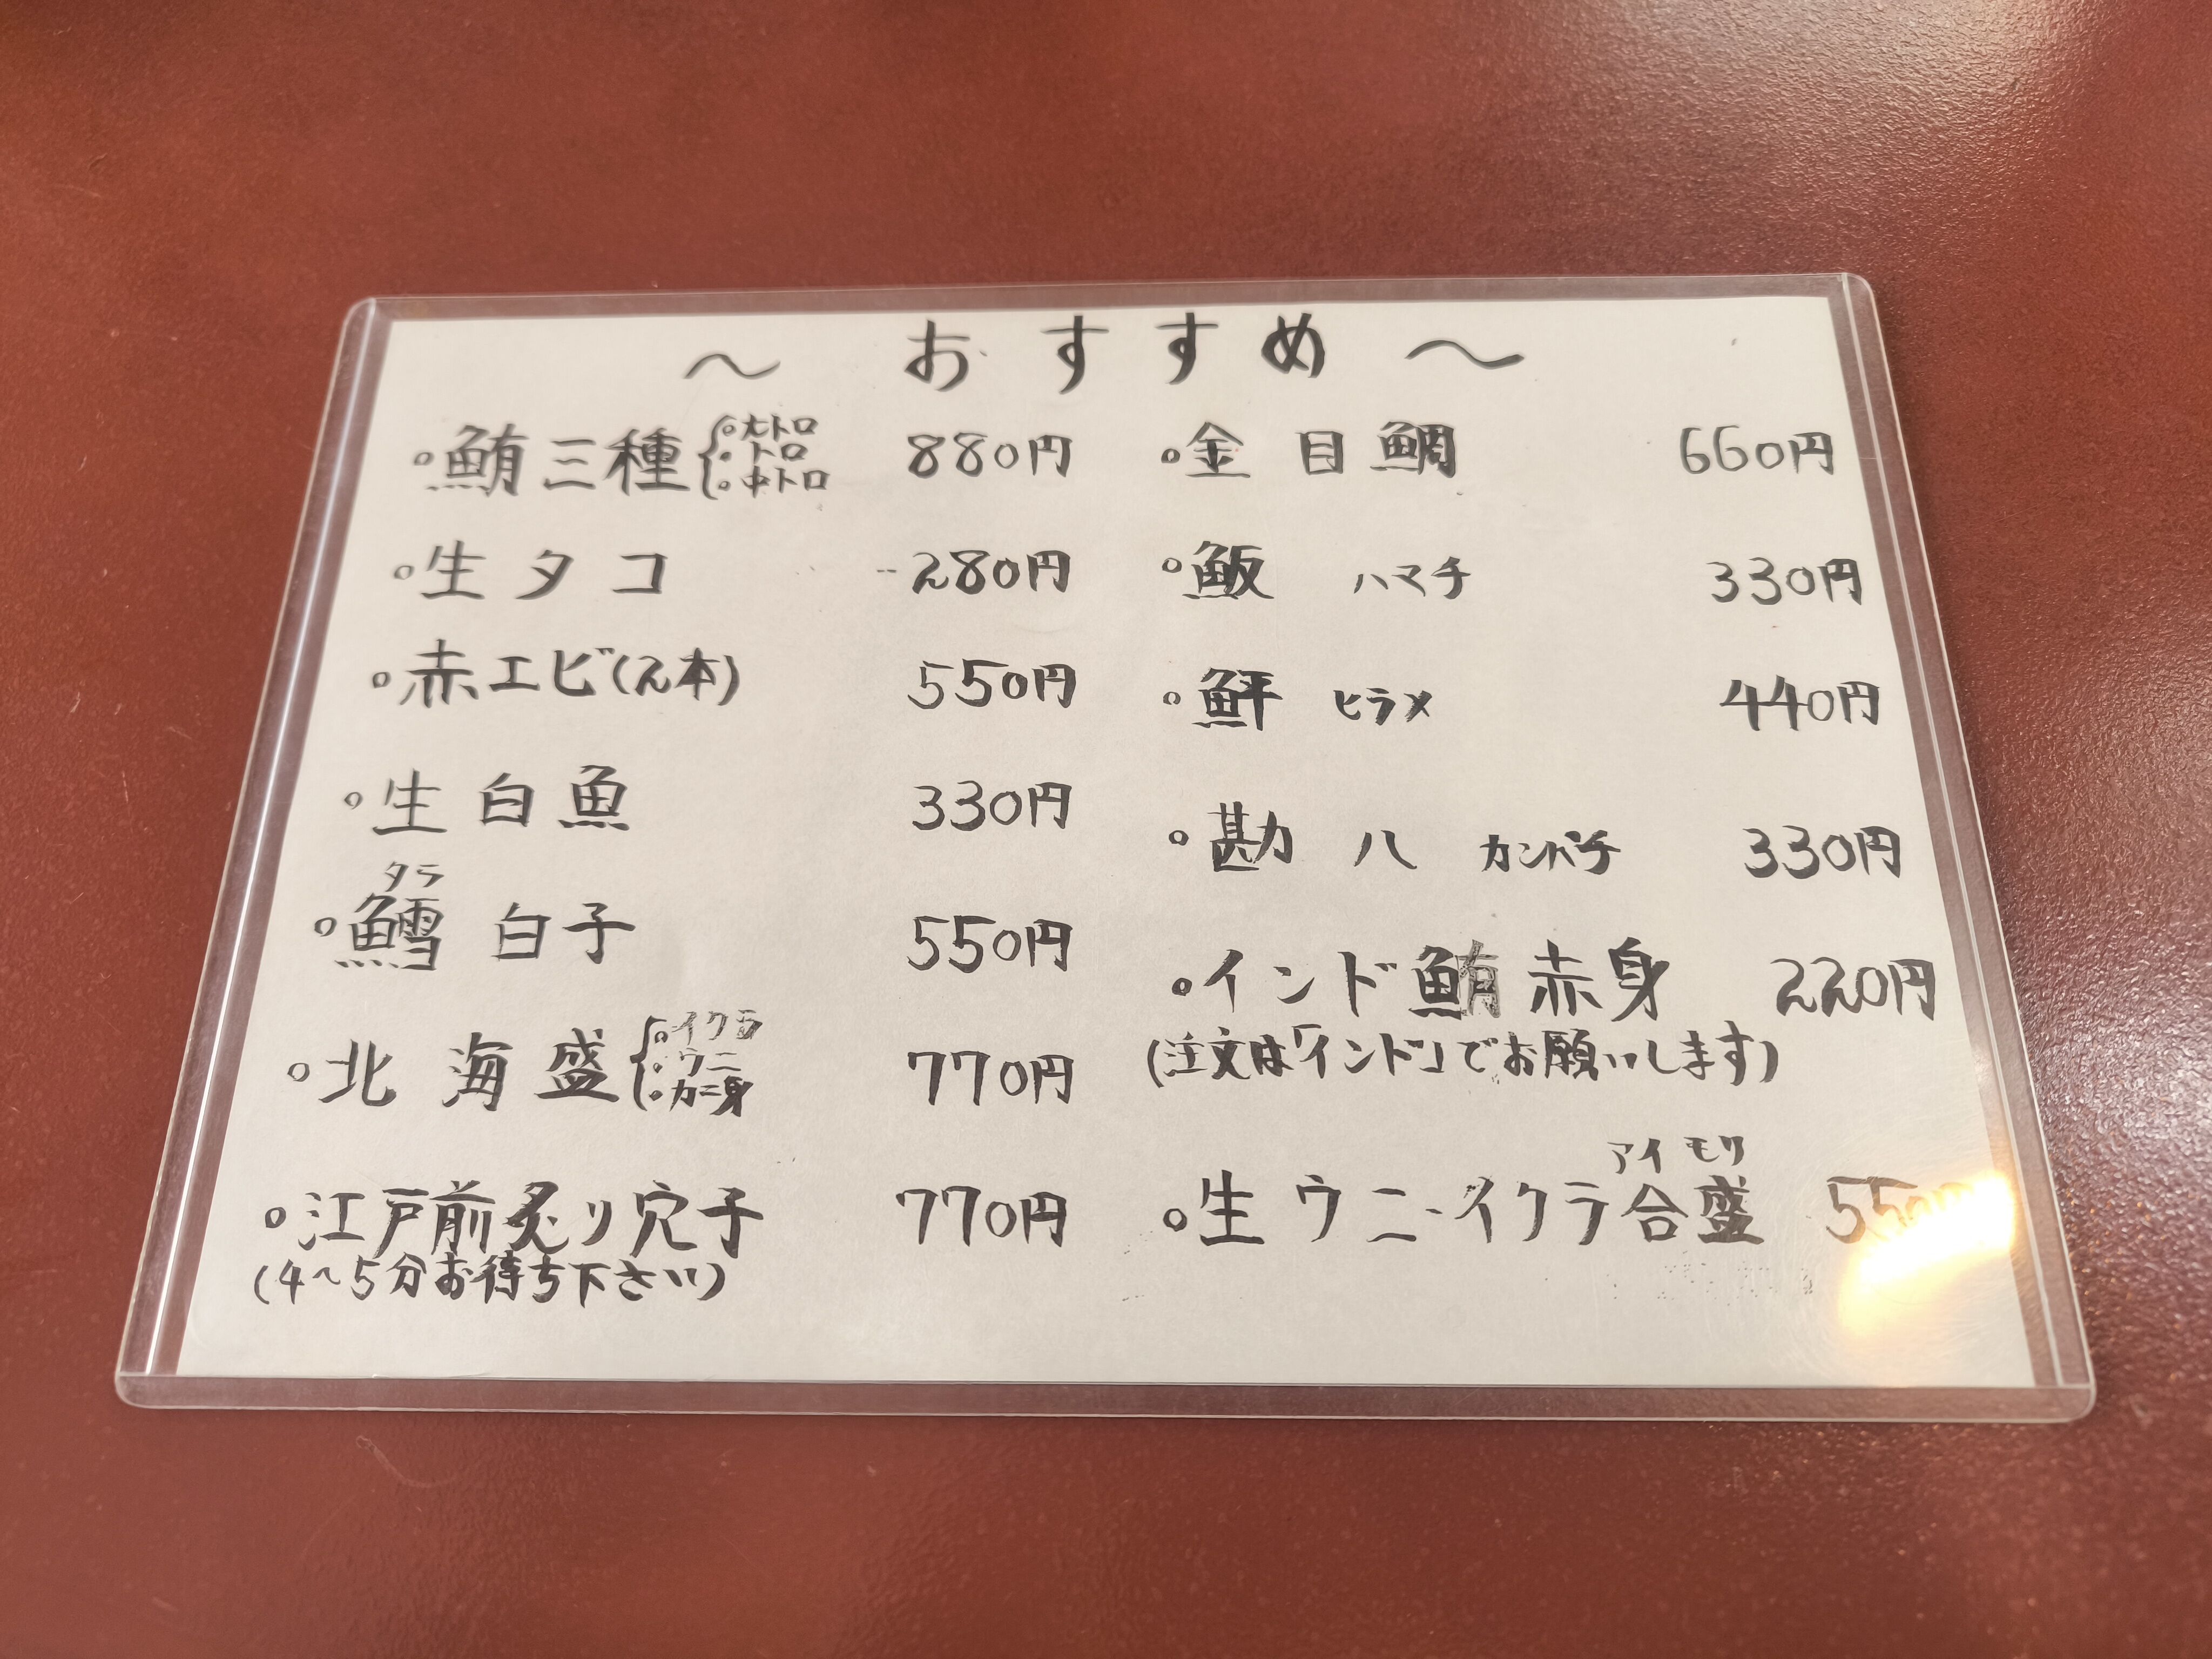 〜 おすすめ 〜
。鮪三種{。大トロ 。トロ 。中トロ 880円
。生タコ 280円
。赤エビ(2本) 550円
。生白魚 330円
タラ
。鱈 白子 550円
。北海盛{。イクラ 。ウニ 。カニ身 770円
。江戸前炙り穴子 770円
(4〜5分お待ち下さい)
。金目鯛 660円
。魬 ハマチ 330円
。鮃 ヒラメ 440円
。勘八 カンパチ 330円
。インド鮪赤身 220円
(注文は「インド」でお願いします)
アイモリ
。生ウニ・イクラ合盛